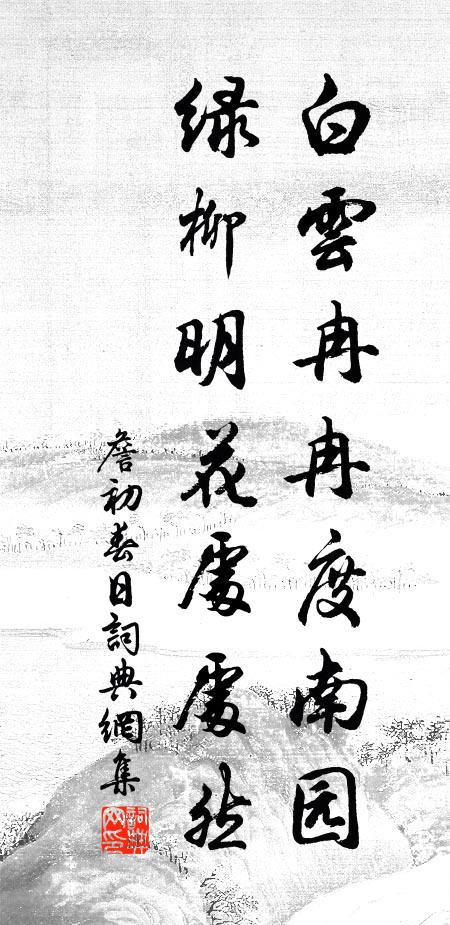 白雲冉冉度南园
绿柳明花處處然
詹初春日詞典網集